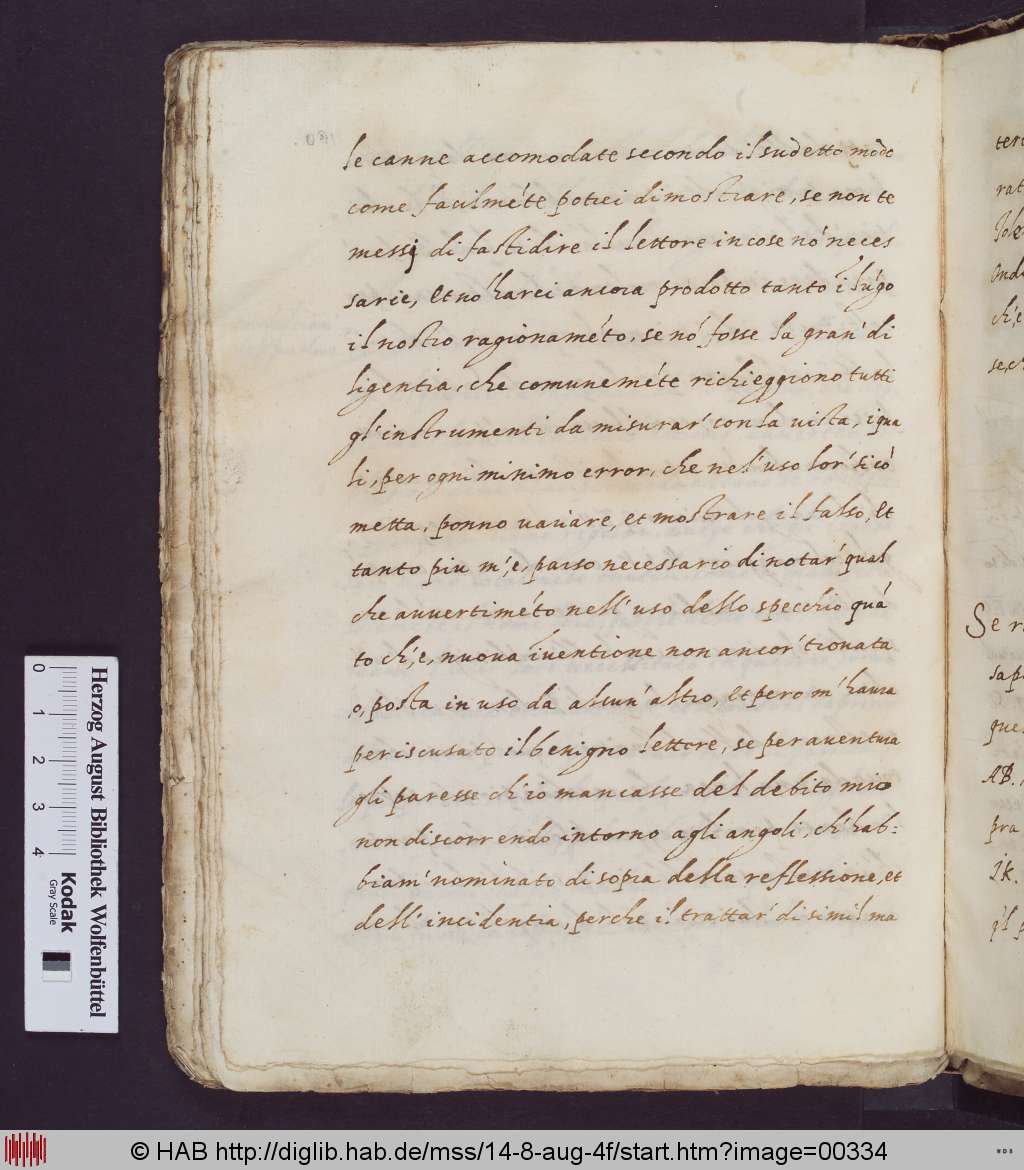 le canne accomodate secondo il sudetto modo
come facilmẽte potrei dimostrare, se non te
messi di fastidire il lettore in cose nõ neces
sarie, et nõ harei ancora prodotto tanto ĩ lũgo
il nostro ragionamẽto, se nõ fosse la gran' di
ligentia, che comunemẽte richieggiono tutti
gl' instrumenti da misurar' con la vista, i qua
li, per ogni minimo error, che nel' uso lor' si cõ
metta, ponno variare, et mostrare il falso, et
tanto piu m', e, parso necessario di notar' qual
che avvertimẽto nell' uso dello specchio quã
to ch', e, nuova ĩventione non ancor' trovata
,o, posta in uso da alcun' altro, et pero m' havra
per iscusato il benigno lettore, se per aventura
gli paresse ch' io mancasse del debito mio
non discorrendo intorno a gli angoli, ch' hab=
biam' nominato di sopra della reflessione, et
dell' incidentia, perche il trattar' di simil ma
rat
ch', e
Se r
sap
que
AB.
pra
ik.
Herzog August Bibliothek Wolfenbüttel
Kodak
Gray Scale
0 1 2 3 4
© HAB http://diglib.hab.de/mss/14-8-aug-4f/start.htm?image=00334